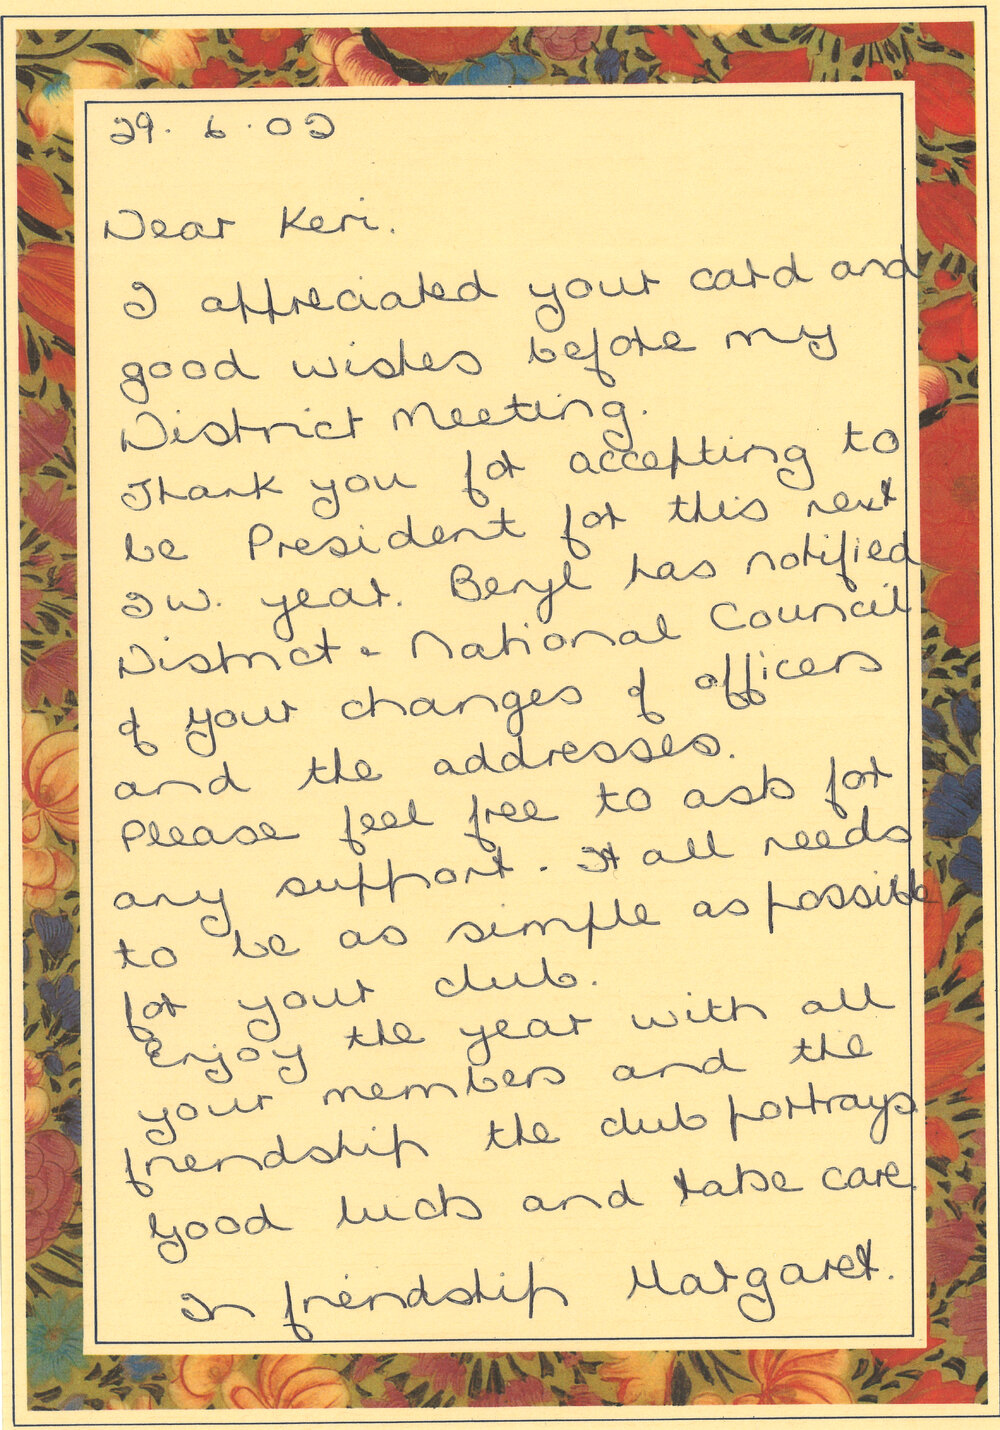 29. 6. 02
Dear Keri.
I appreciated your card and
good wishes before my
District Meeting.
Thank you for accepting to
be President for this next
IW. year. Beryl has notified
District & National Council
of your changes of officers
and the addresses.
Please feel free to ask for
any support. It all needs
to be as simple as possible
for your club.
Enjoy the year with all
your members and the
friendship the club portrays
Good luck and take care
In friendship Margaret.